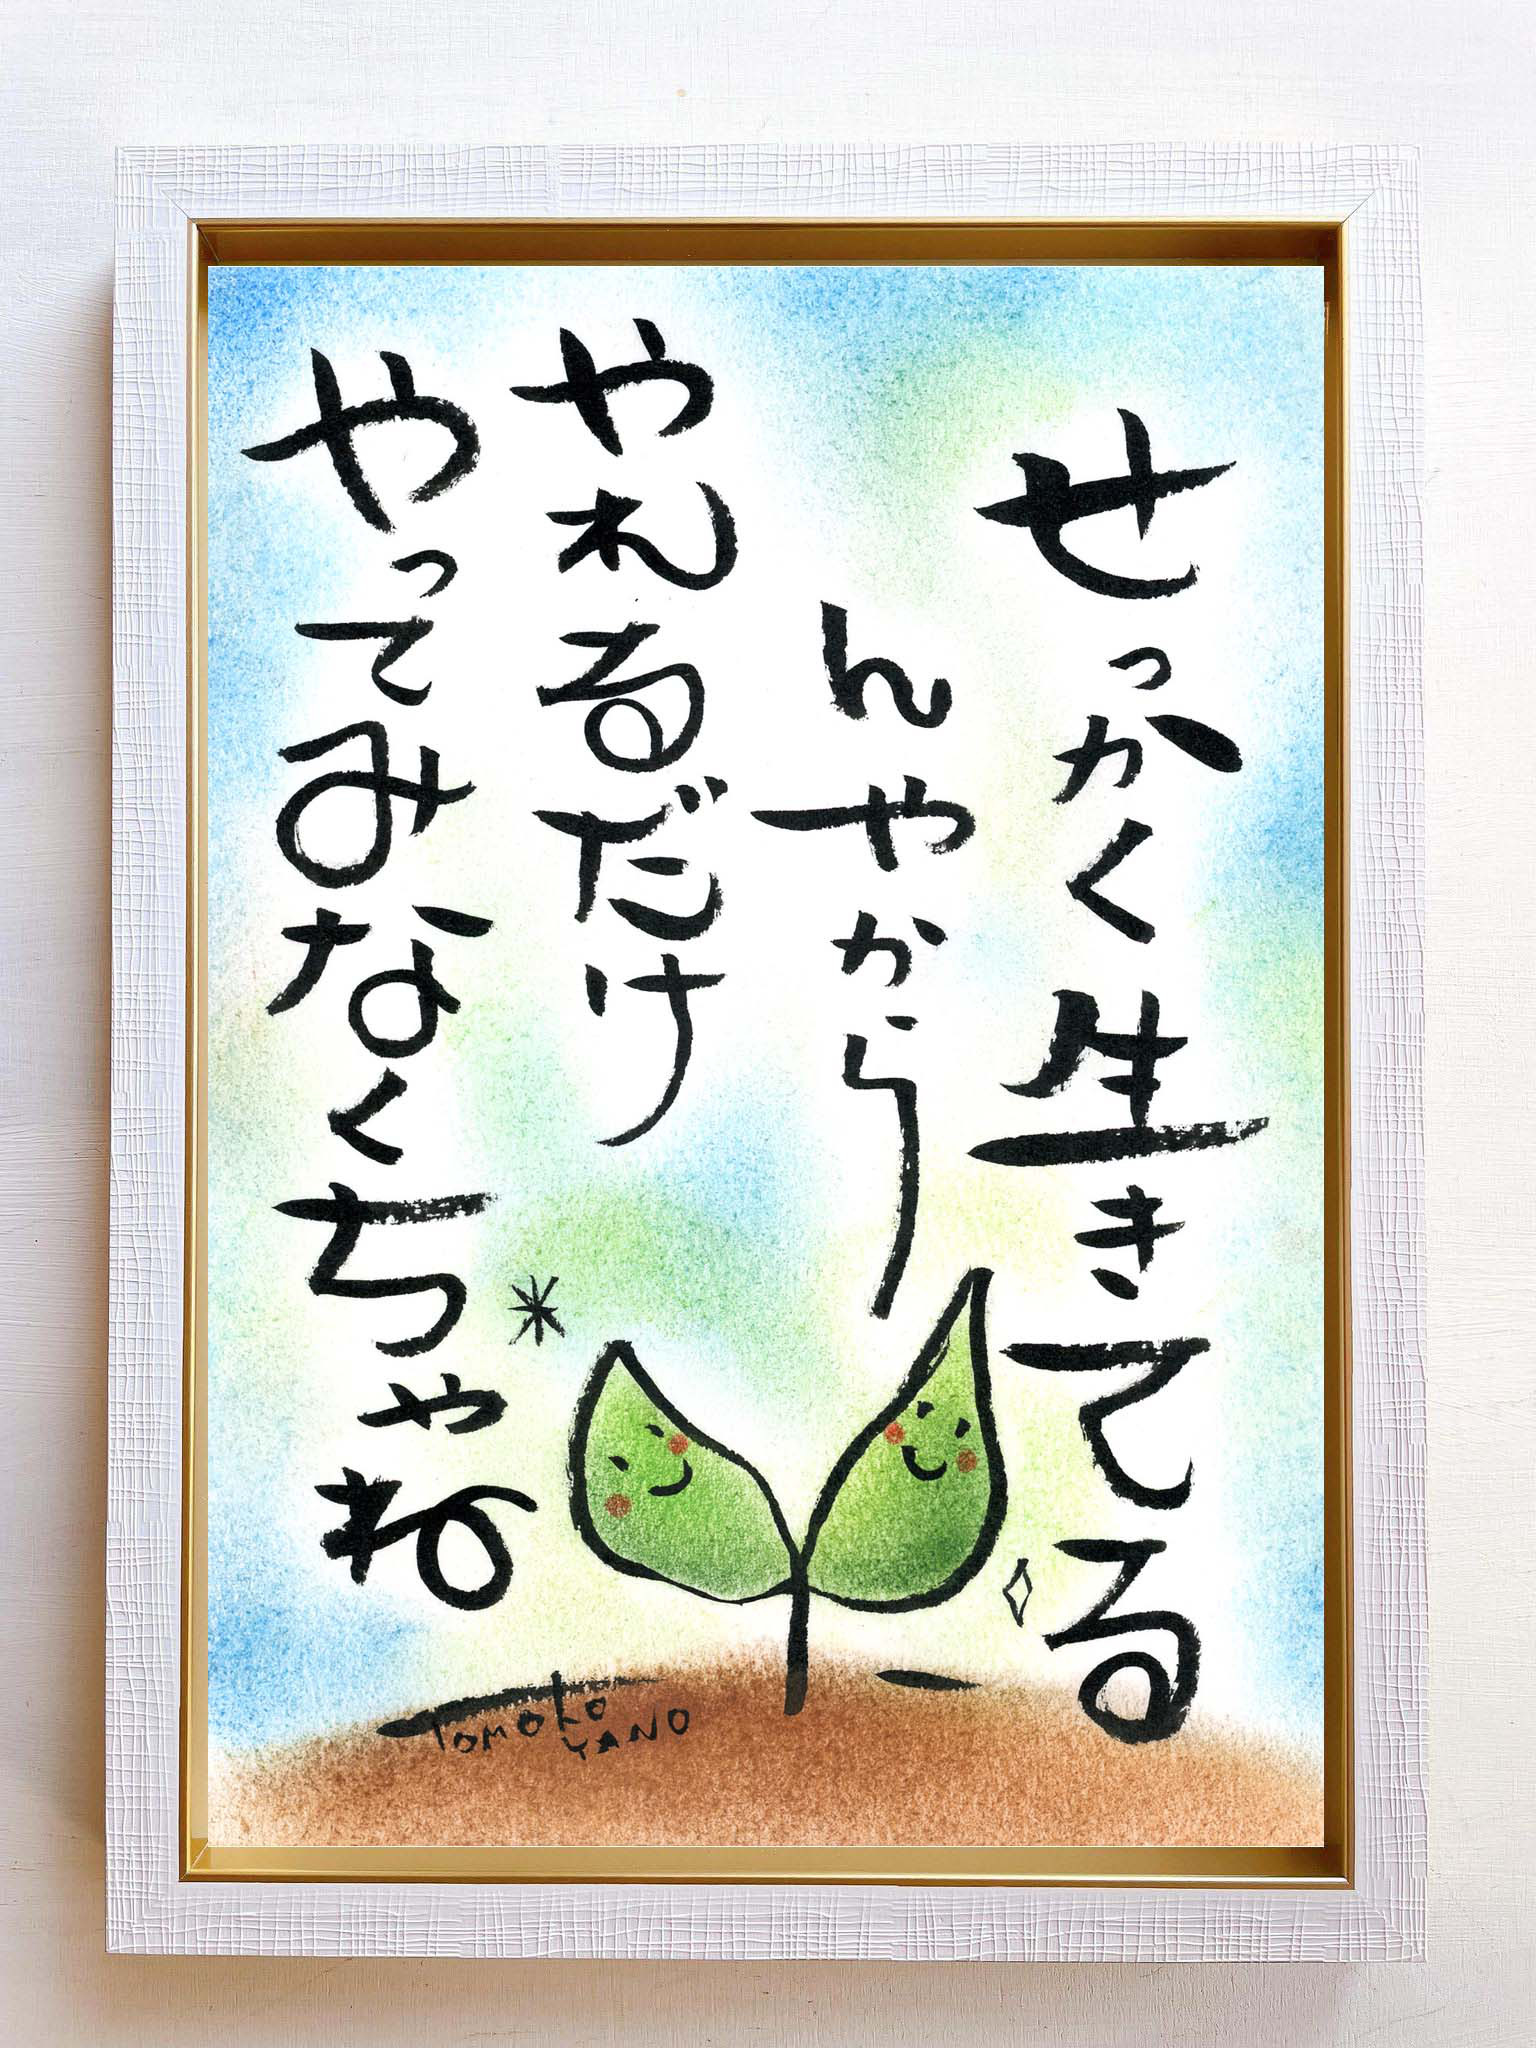 せっかく生きてる
んやから
やれるだけ
やってみなくちゃね
TOMOKO
YANO